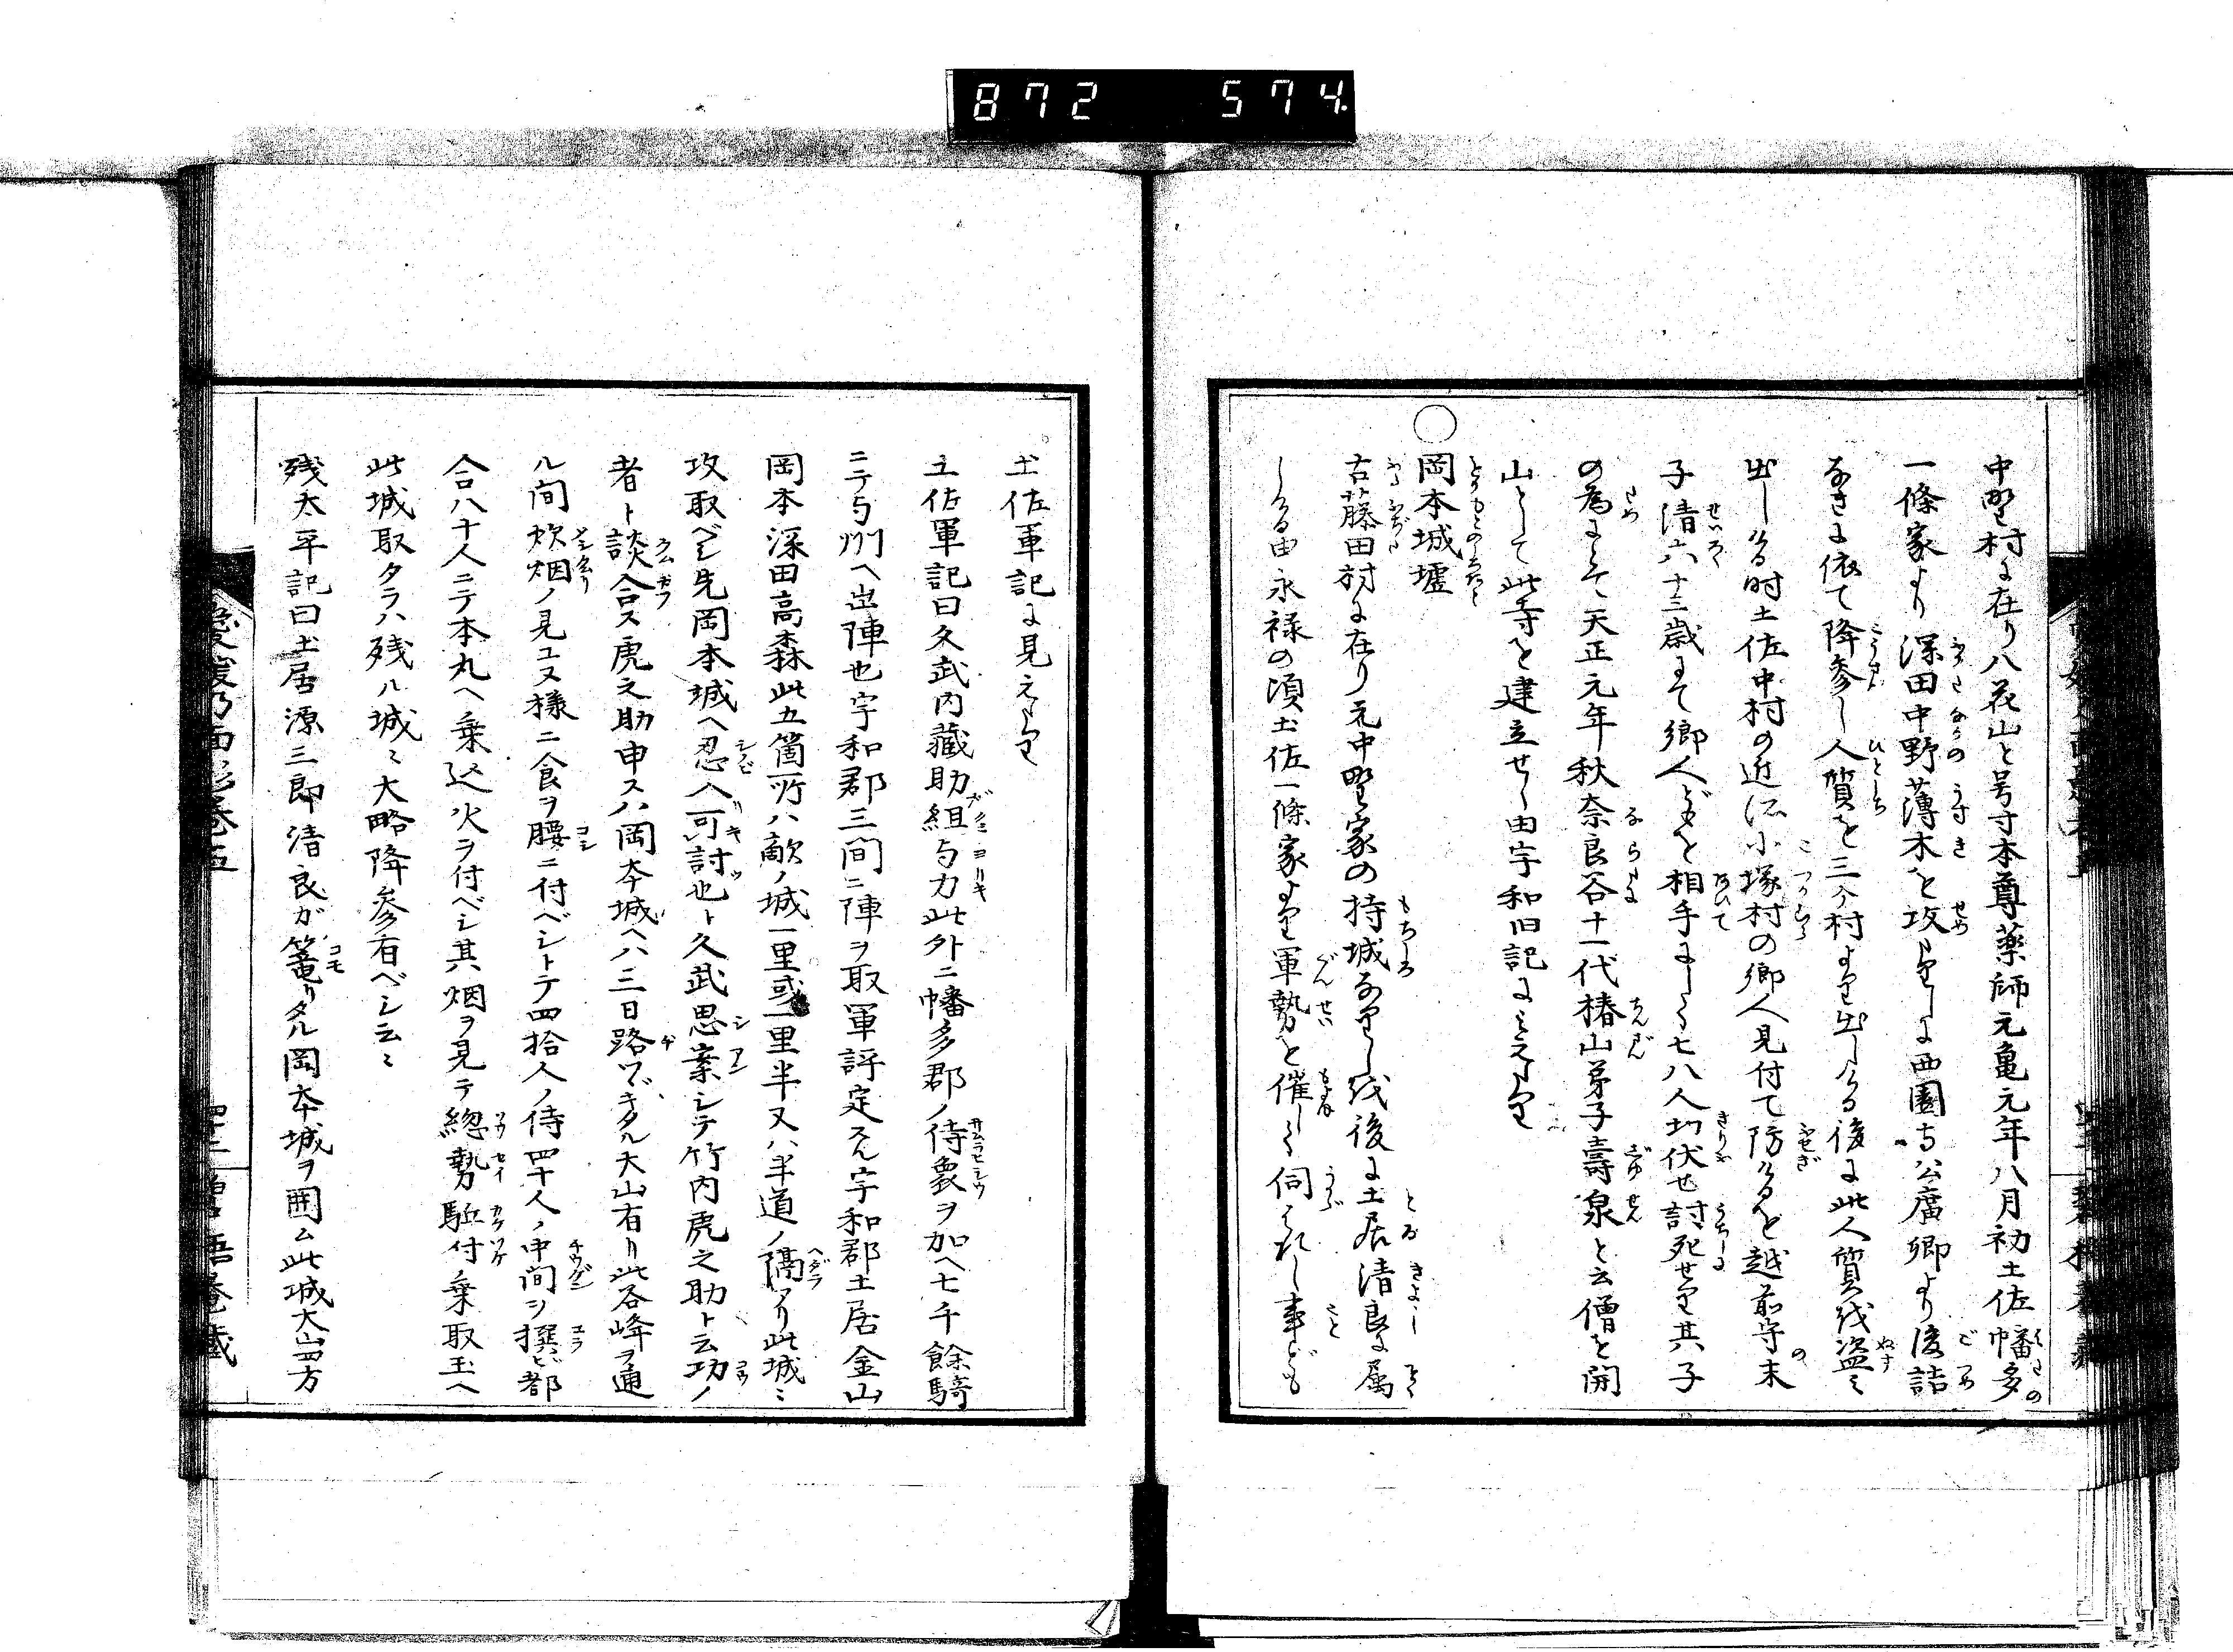 872 574
中野村に在り八花山と号す本尊薬師元亀元年八月初土佐幡多
一條家より深田中野薄木を攻たりしに西園寺公廣卿より後詰
なきに依て降参し人質を三ヶ村より出しける後に此人質を盗ミ
出しける時土佐中村の近辺小塚村の郷人見付て防けるを越前守末
子清六十三歳にて郷人どもを相手にして七八人切伏せ討死せり其子
の為にとて天正元年秋奈良谷十一代椿山弟子壽泉と云僧を開
山として此寺を建立せし由宇和旧記に見えたり
○岡本城墟
古藤田村に在り元中野家の持城なりしを後に土居清良に属
しける由永禄の頃土佐一條家より軍勢を催して伺はれし事ども
土佐軍記に見えたり
土佐軍記曰久武内藏助組与力此外ニ幡多郡ノ侍衆ヲ加ヘ七千餘騎
ニテ与州ヘ出陣也宇和郡三間ニ陣ヲ取軍評定スル宇和郡土居金山
岡本深田高森此五箇所ハ敵ノ城一里或一里半又ハ半道ノ隔アリ此城ミ
攻取ベシ先岡本城ヘ忍入可討也ト久武思案シテ竹内虎之助ト云功ノ
者ト談合ス虎之助申スハ岡本城ヘハ三日路ツヾキタル大山有リ此谷峰ヲ通
ル間炊烟ノ見エヌ様ニ食ヲ腰ニ付ベシトテ四拾人ノ侍四十人ノ中間ヲ撰ビ都
合八十人ニテ本丸ヘ乗込火ヲ付ベシ其烟ヲ見テ總勢駈付乗取玉ヘ
此城取タラハ残ル城ミ大略降参有ベシ云ミ
残太平記曰土居源三郎清良ガ篭リタル岡本城ヲ囲ム此城大山四方
愛媛乃面影巻五